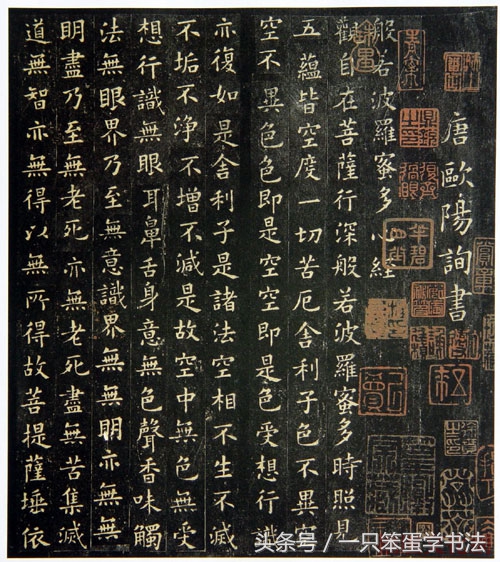 唐歐陽詢書
般若波羅蜜多心經
觀自在菩薩行深般若波羅蜜多時照見
五蘊皆空度一切苦厄舍利子色不異空
空不異色色即是空空即是色受想行識
亦復如是舍利子是諸法空相不生不滅
不垢不淨不增不減是故空中無色無受
想行識無眼耳鼻舌身意無色聲香味觸
法無眼界乃至無意識界無無明亦無無
明盡乃至無老死亦無老死盡無苦集滅
道無智亦無得以無所得故菩提薩埵依
头条号 / 一只笨蛋学书法